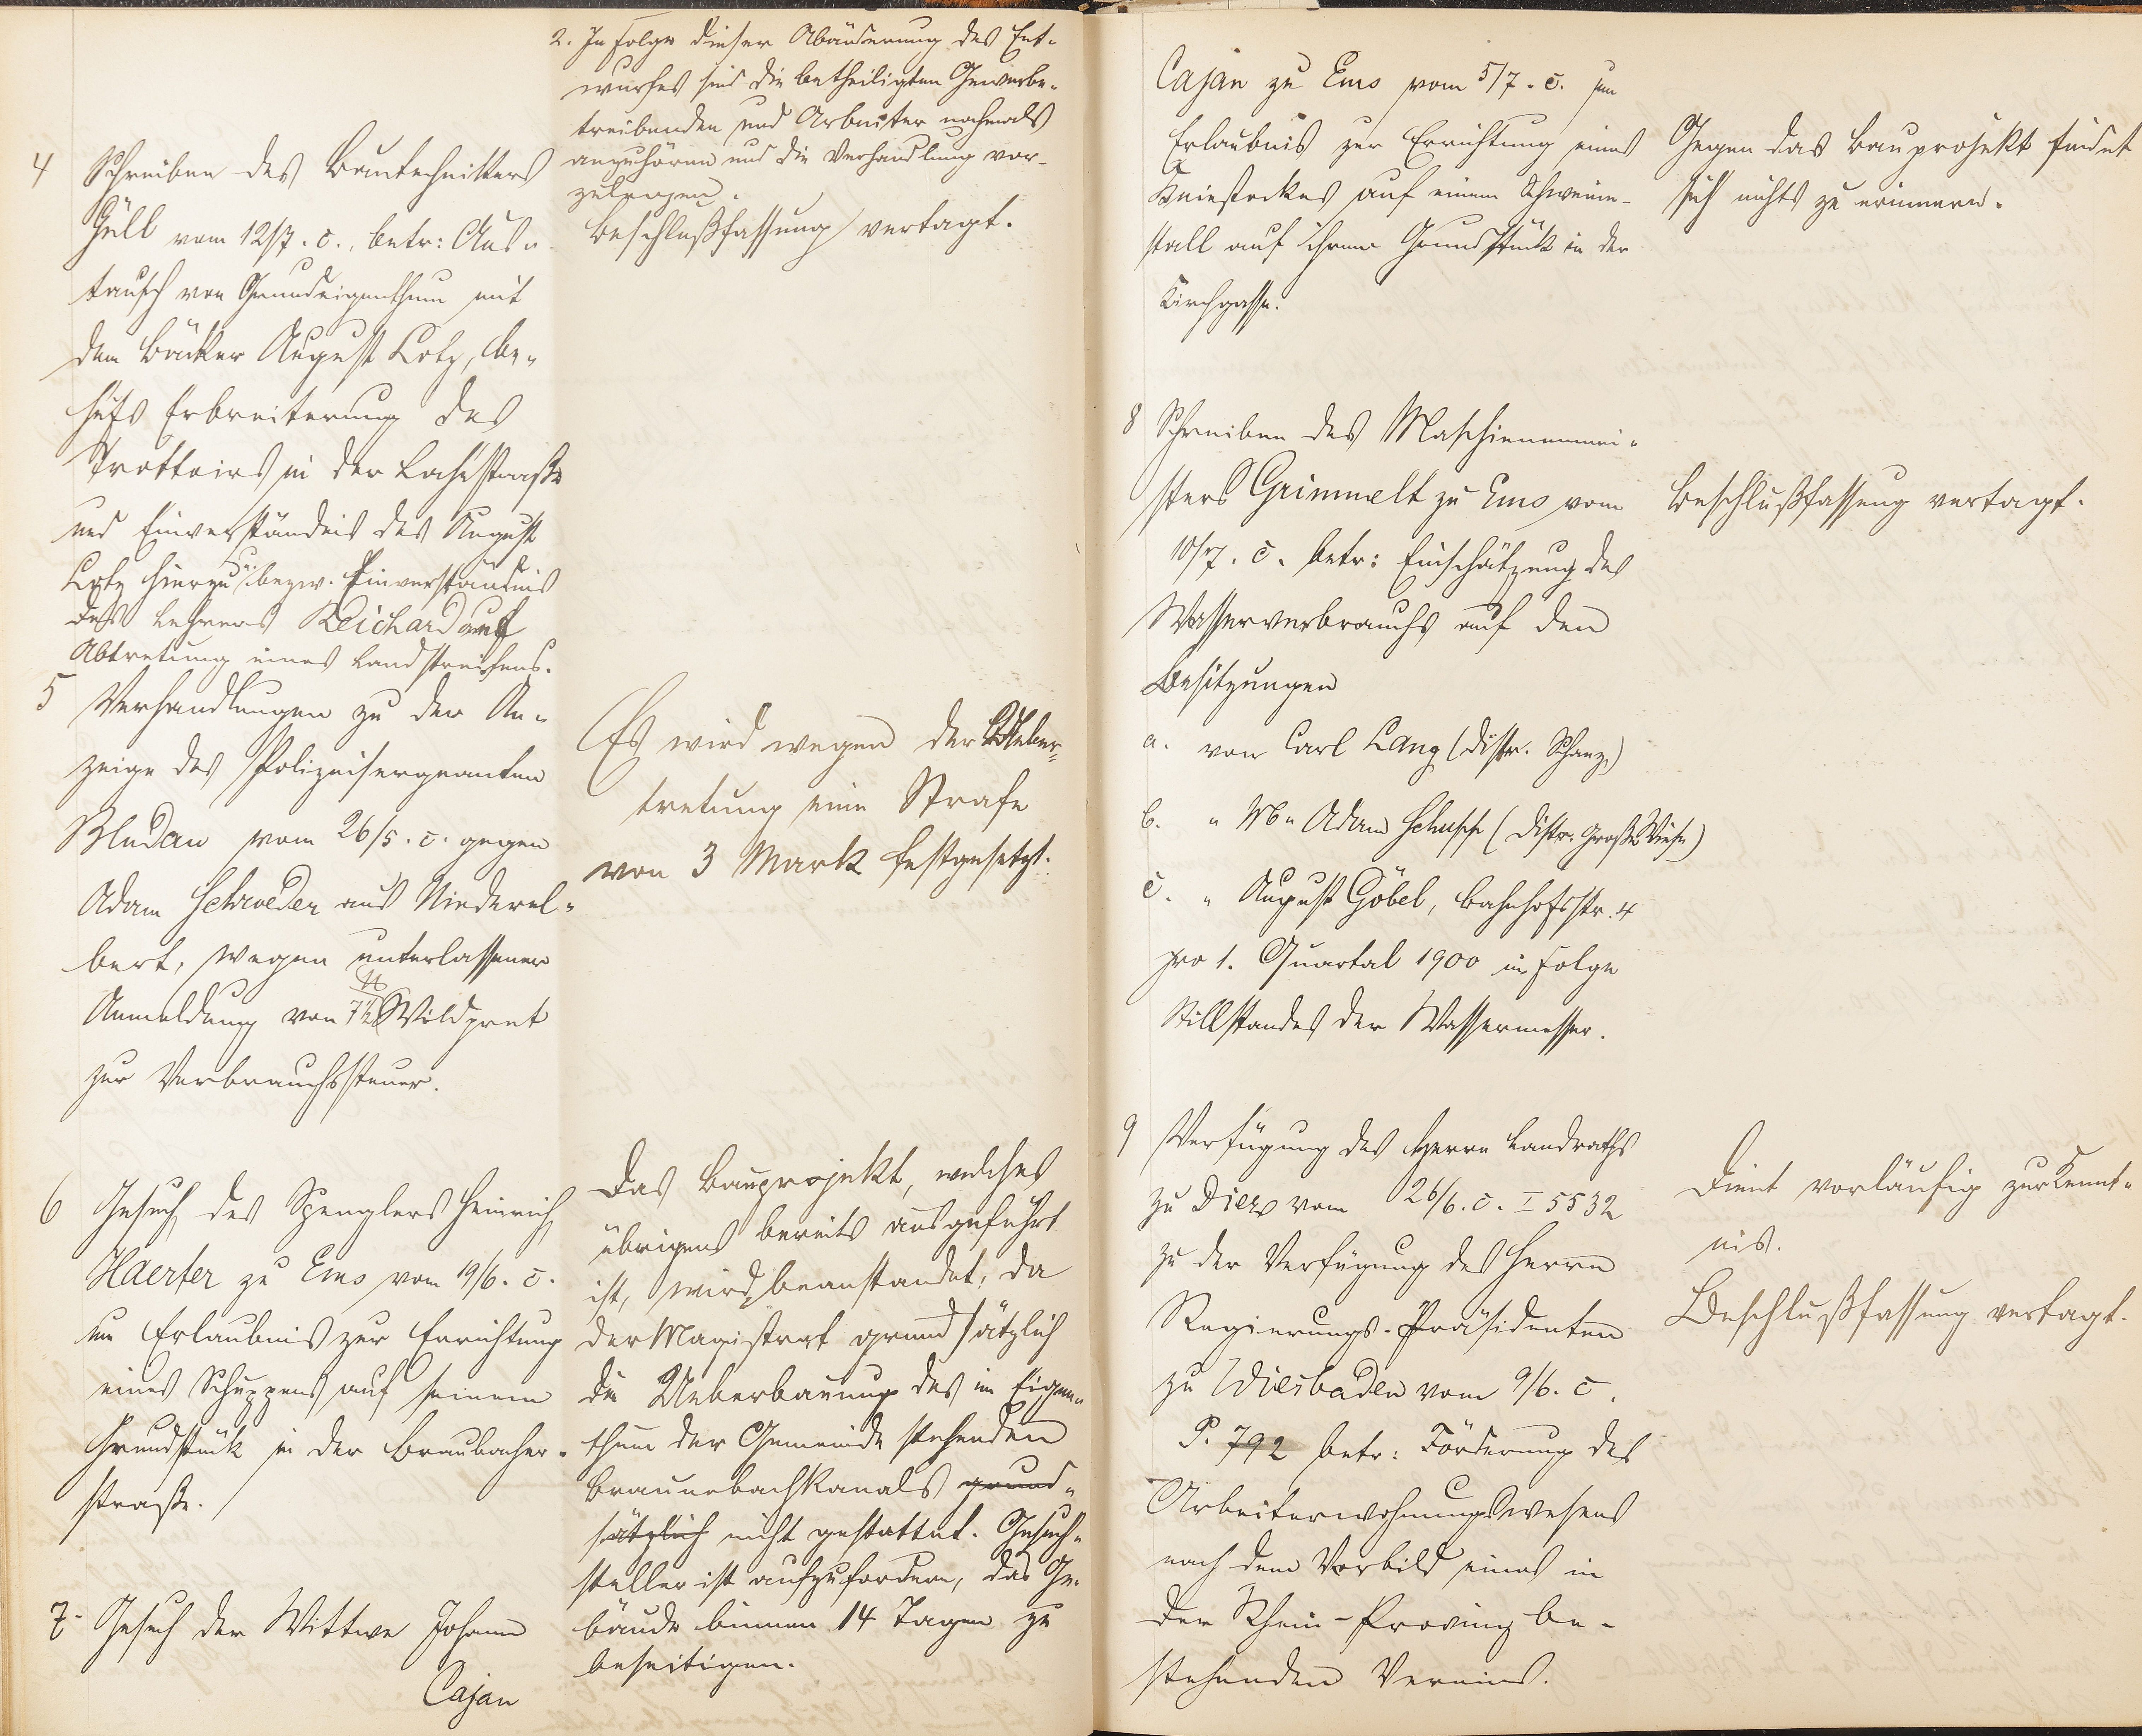 2. In Folge dieser Abänderung des Ent-
wurfes sind die betheiligten Gewerbe-
treibenden und Arbeiter nochmals
anzuhören und die Verhandlung vor-
zulegen.
4 Schreiben des Bautechnikers
Güll vom 12/7. c., betr: Aus-
tausch von Grundeigenthum mit
dem Bäcker August Lotz, be-
hufs Erbreiterung des
Trottoirs in der Lahnstraße
und Einverständnis des August
Lotz hierzu u. bezw. Einverständnis
des Lehrers Reichard auf
Abtretung eines Landstreifens.
Beschlußfassung vertagt.
5 Verhandlungen zu der An-
zeige des Polizeisergeanten
Bludau vom 26/5. c. gegen
Adam Schroeder aus Niederel-
bert, wegen unterlassener
Anmeldung von 7½ ℔ Wildpret
zur Verbrauchssteuer.
Es wird wegen der Ueber-
tretung eine Strafe
von 3 Mark festgesetzt.
6 Gesuch des Spenglers Heinrich
Haerter zu Ems vom 19/6. c.
um Erlaubnis zur Errichtung
eines Schuppens auf seinem
Grundstück in der Braubacher-
straße.
Das Bauprojekt, welches
übrigens bereits ausgeführt
ist, wird beanstandet, da
der Magistrat grundsätzlich
die Ueberbauung des im Eigen-
thum der Gemeinde stehenden
Braunebachkanals grund-
sätzlich nicht gestattet. Gesuch-
steller ist aufzufordern, das Ge-
bäude binnen 14 Tagen zu
beseitigen.
7. Gesuch der Wittwe Johann
Cajan
Cajan zu Ems vom 5/7. c. um
Erlaubnis zur Errichtung eines
Kniestockes auf einem Schweine-
stall auf ihrem Grundstück in der
Kirchgasse.
Gegen das Bauprojekt findet
sich nichts zu erinnern.
8 Schreiben des Maschienenmei-
sters Grimmelt zu Ems vom
10/7. c. betr: Einschätzung des
Wasserverbrauchs auf den
Besitzungen
a. von Carl Lang (Distr. Schanz)
b. " Adam Schupp (Distr. Große Wiese)
c. " August Göbel, Bahnhofstr. 4
pro 1. Quartal 1900 in Folge
Stillstandes der Wassermesser.
Beschlußfassung vertagt.
9 Verfügung des Herrn Landraths
zu Diez vom 26/6. c. I 5532
zu der Verfügung des Herrn
Regierungs-Präsidenten
zu Wiesbaden vom 9/6. c.
P. 792 betr: Förderung des
Arbeiterwohnungswesens
nach dem Vorbild eines in
der Rhein-Provinz be-
stehenden Vereins.
Dient vorläufig zur Kennt-
nis.
Beschlußfassung vertagt.